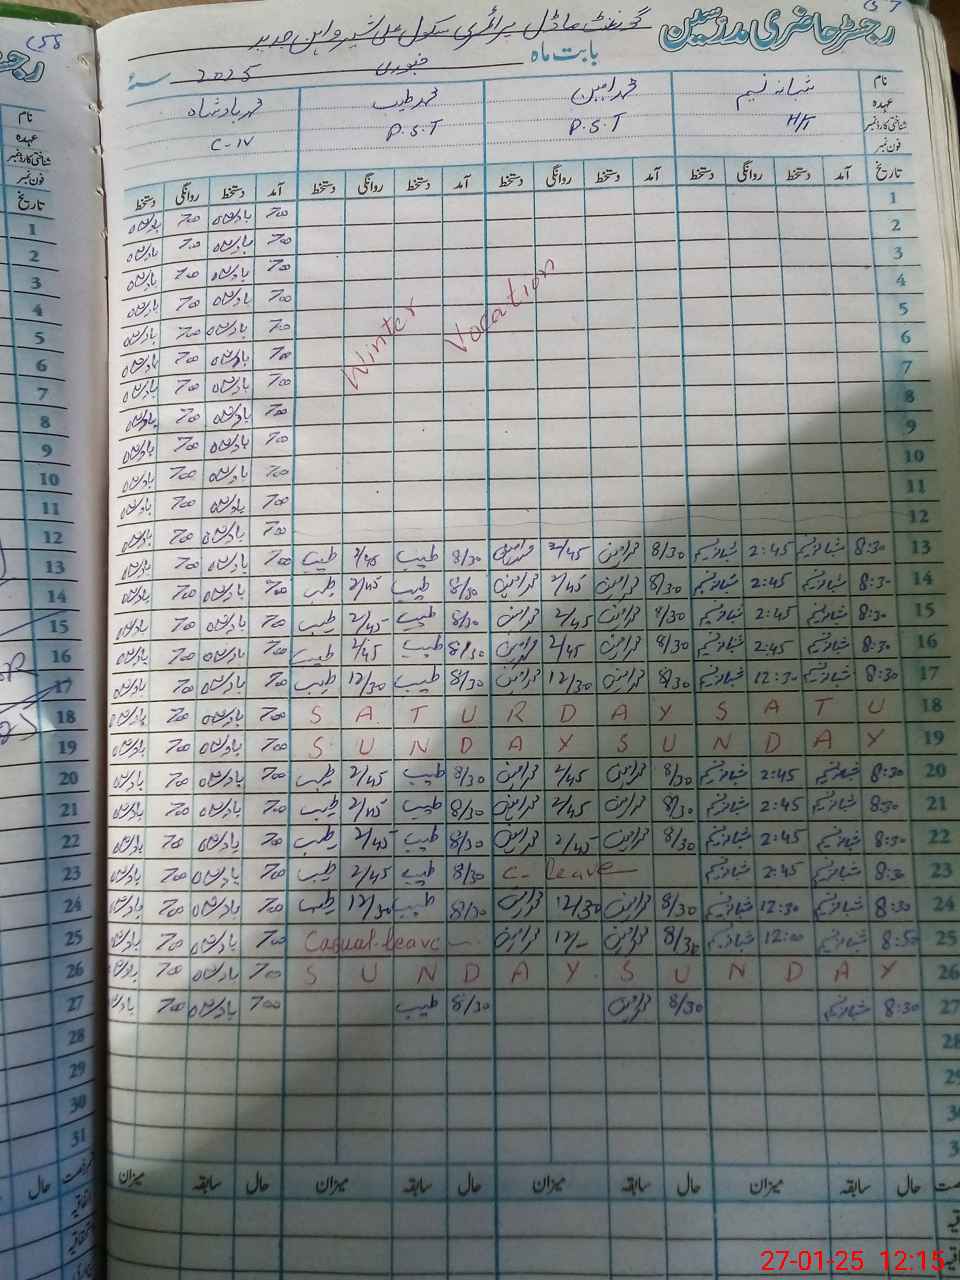 رجسٹر حاضری مدرّسین گورنمنٹ ماڈل پرائمری سکول علی شیر واہن جدید
بابت ماہ جنوری 2025 سنہ
نام شبانہ نسیم محمد امین محمد طیب محمد بادشاہ
عہدہ H/T P.S.T P.S.T C-IV
شناختی کارڈ نمبر
فون نمبر
تاریخ آمد دستخط روانگی دستخط آمد دستخط روانگی دستخط آمد دستخط روانگی دستخط آمد دستخط روانگی دستخط
1 700 بادشاہ 700 بادشاہ
2 700 بادشاہ 700 بادشاہ
3 700 بادشاہ 700 بادشاہ
4 700 بادشاہ 700 بادشاہ
5 700 بادشاہ 700 بادشاہ
6 700 بادشاہ 700 بادشاہ
Winter Vocation
7 700 بادشاہ 700 بادشاہ
8 700 بادشاہ 700 بادشاہ
9 700 بادشاہ 700 بادشاہ
10 700 بادشاہ 700 بادشاہ
11 700 بادشاہ 700 بادشاہ
12 700 بادشاہ 700 بادشاہ
13 8:30 شبانہ نسیم 2:45 شبانہ نسیم 8/30 محمد امین 2/45 محمد امین 8/30 طیب 2/45 طیب 700 بادشاہ 700 بادشاہ
14 8:30 شبانہ نسیم 2:45 شبانہ نسیم 8/30 محمد امین 2/45 محمد امین 8/30 طیب 2/45 طیب 700 بادشاہ 700 بادشاہ
15 8:30 شبانہ نسیم 2:45 شبانہ نسیم 8/30 محمد امین 2/45 محمد امین 8/30 طیب 2/45 طیب 700 بادشاہ 700 بادشاہ
16 8:30 شبانہ نسیم 2:45 شبانہ نسیم 8/30 محمد امین 2/45 محمد امین 8/30 طیب 2/45 طیب 700 بادشاہ 700 بادشاہ
17 8:30 شبانہ نسیم 12:30 شبانہ نسیم 8/30 محمد امین 12/30 محمد امین 8/30 طیب 12/30 طیب 700 بادشاہ 700 بادشاہ
18 S A T U R D A Y S A T U 700 بادشاہ 700 بادشاہ
19 S U N D A Y S U N D A Y 700 بادشاہ 700 بادشاہ
20 8:30 شبانہ نسیم 2:45 شبانہ نسیم 8/30 محمد امین 2/45 محمد امین 8/30 طیب 2/45 طیب 700 بادشاہ 700 بادشاہ
21 8:30 شبانہ نسیم 2:45 شبانہ نسیم 8/30 محمد امین 2/45 محمد امین 8/30 طیب 2/45 طیب 700 بادشاہ 700 بادشاہ
22 8:30 شبانہ نسیم 2:45 شبانہ نسیم 8/30 محمد امین 2/45 محمد امین 8/30 طیب 2/45 طیب 700 بادشاہ 700 بادشاہ
23 8:30 شبانہ نسیم 2:45 شبانہ نسیم C-leave 8/30 طیب 2/45 طیب 700 بادشاہ 700 بادشاہ
24 8:30 شبانہ نسیم 12:30 شبانہ نسیم 8/30 محمد امین 12/30 محمد امین 8/30 طیب 12/30 طیب 700 بادشاہ 700 بادشاہ
25 شبانہ نسیم 12:00 شبانہ نسیم 8/30 محمد امین 12/- محمد امین Casual-leave 700 بادشاہ 700 بادشاہ
26 S U N D A Y S U N D A Y 700 بادشاہ 700 بادشاہ
27 8:30 شبانہ نسیم 8/30 محمد امین 8/30 طیب 700 بادشاہ 700 بادشاہ
28
29
30
31
حال سابقہ میزان حال سابقہ میزان حال سابقہ میزان حال سابقہ میزان
27-01-25 12:15